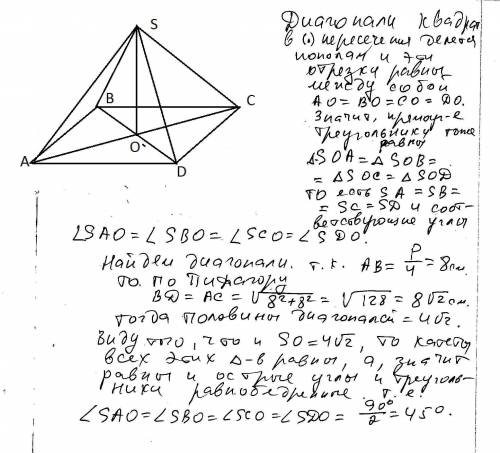 S
B
C
O
A
D
Диагонали квадрат
в (.) пересечения делятся
пополам и эти
отрезки равны
между собой
AO = BO = CO = DO.
Значит, прямоуг-е
треугольники тоже
равны
△SOA = △SOB =
= △SOC = △SOD
то есть SA = SB =
= SC = SD и соот-
ветствующие углы
∠SAO = ∠SBO = ∠SCO = ∠SDO.
Найдем диагонали. т.к. AB = P/4 = 8 см.
то по Пифагору
BD = AC = √8²+8² = √128 = 8√2 см.
тогда половины диагоналей = 4√2.
Ввиду того, что и SO = 4√2, то катеты
всех этих △-в равны, а, значит
равны и острые углы и треуголь-
ники равнобедренные т.е.
∠SAO = ∠SBO = ∠SCO = ∠SDO = 90°/2 = 45°.